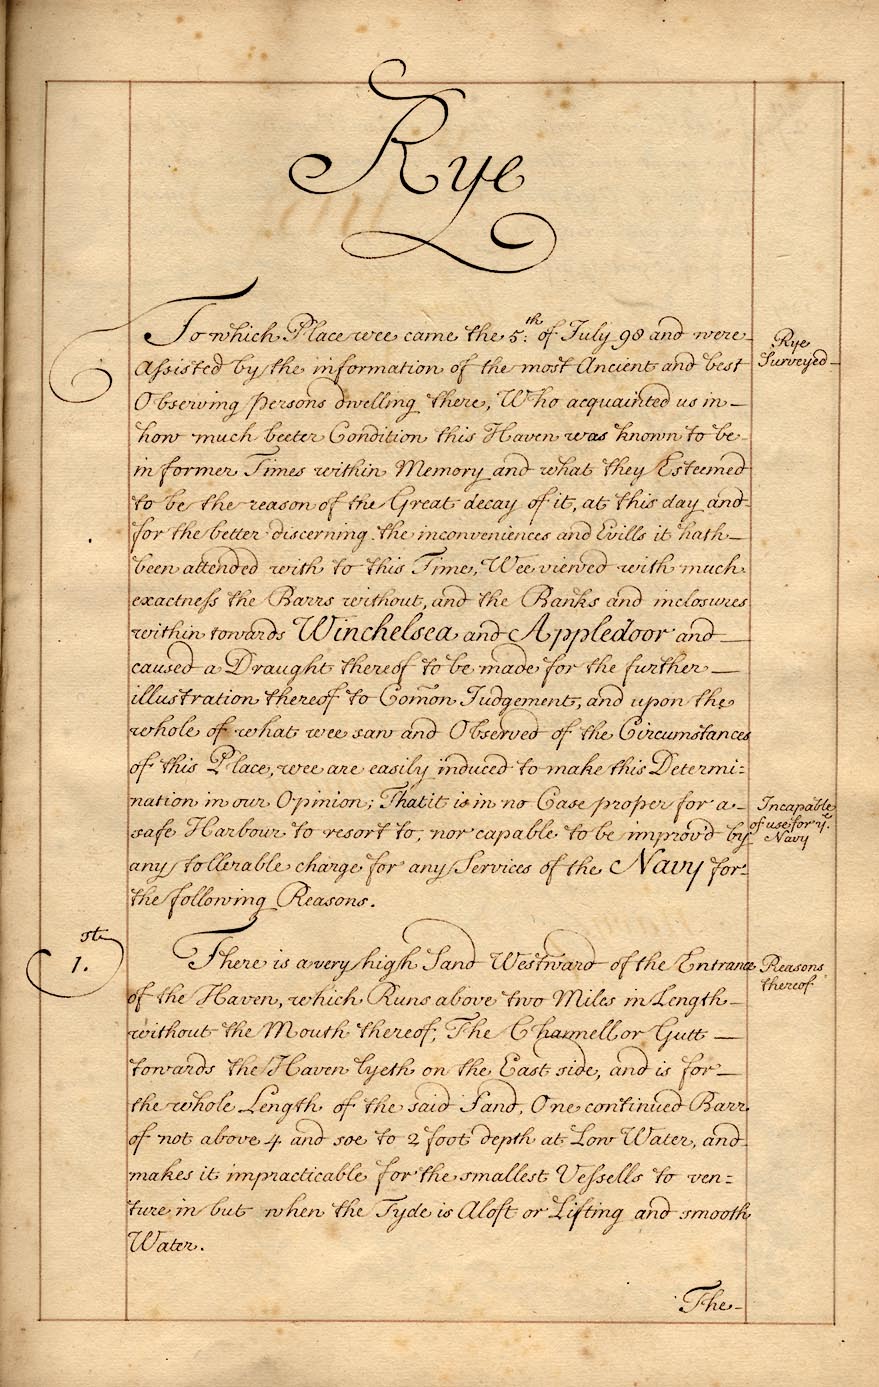 Rye
To which Place wee came the 5th: of July 98 and were
Rye
Surveyed
Assisted by the information of the most Ancient and best
Observing persons dwelling there, Who acquainted us in
how much beeter Condition this Haven was known to be
in former Times within Memory and what they Esteemed
to be the reason of the Great decay of it, at this day and
for the better discerning the inconveniences and Evills it hath
been attended with to this Time, Wee viewed with much
exactness the Barrs without, and the Banks and inclosures
within towards Winchelsea and Appledoor and
caused a Draught thereof to be made for the further
illustration thereof to Com̃on Judgement, and upon the
whole of what wee saw and Observed of the Circumstances
of this Place, wee are easily induced to make this Determi:
nation in our Opinion; That it is in no Case proper for a
Incapable
of use for ye.
Navy
safe Harbour to resort to, nor capable to be improv'd by
any tollerable charge for any Services of the Navy for
the following Reasons.
1.st
There is a very high Sand Westward of the Entrance
Reasons
thereof
of the Haven, which Runs above two Miles in Length
without the Mouth thereof; The Channell or Gutt
towards the Haven lyeth on the East side, and is for
the whole Length of the said Sand, One continued Barr
of not above 4 and soe to 2 foot depth at Low Water, and
makes it impracticable for the smallest Vessells to ven:
ture in but when the Tyde is Aloft or Lifting and smooth
Water.
The